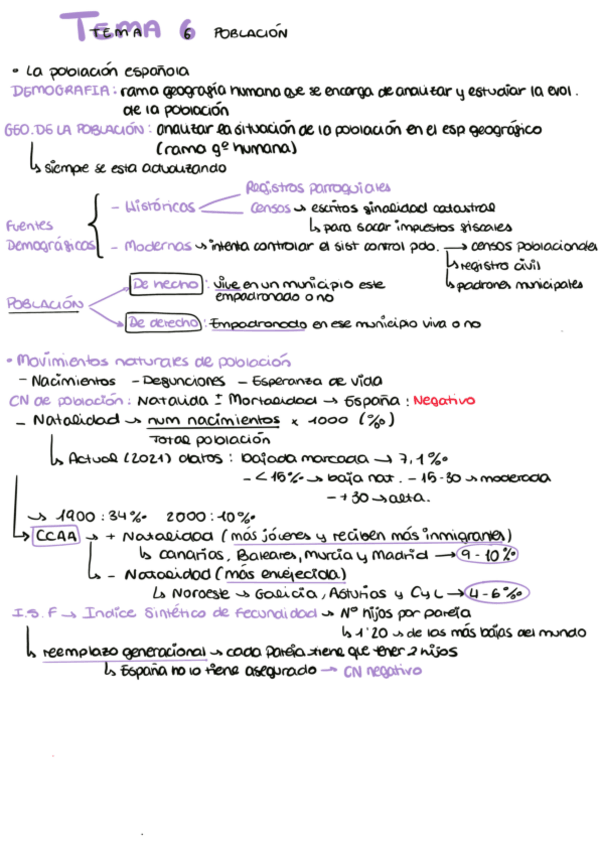 TEMA 6 POBLACIÓN
• La población española
DEMOGRAFIA: rama geografía humana que se encarga de analizar y estudiar la evol.
de la población
GEO. DE LA POBLACIÓN: analizar la situación de la población en el esp geográfico
(rama gº humana)
↳ siempre se esta actualizando
Fuentes Demográficas
- Históricos
Registros parroquiales
Censos → escritos finalidad catastral
↳ para sacar impuestos fiscales
- Modernas → intenta controlar el sist control pdo. → censos poblacionales
↳ registro civil
↳ padrones municipales
POBLACIÓN
De hecho: vive en un municipio este
empadronado o no
De derecho: Empadronado en ese municipio viva o no
• Movimientos naturales de población
- Nacimientos - Defunciones - Esperanza de vida
CN de población: Natalida ± Mortalidad → España: Negativo
- Natalidad → num nacimientos x 1000 (‰)
Total población
↳ Actual (2021) datos: bajada marcada → 7,1‰
- <15‰ → baja nat. - 15-30 → moderada
- +30 → alta.
→ 1900: 34‰ 2000: 10‰
↳ CCAA → + Natalidad (más jóvenes y reciben más inmigrantes)
↳ canarias, Baleares, Murcia y Madrid → 9-10‰
↳ - Natalidad (más envejecida)
↳ Noroeste → Galicia, Asturias y CyL → 4-6‰
I.S.F → Indice Sintético de Fecundidad → Nº hijos por pareja
↳ 1'20 → de las más bajas del mundo
↳ reemplazo generacional → cada pareja tiene que tener 2 hijos
↳ España no lo tiene asegurado → CN negativo